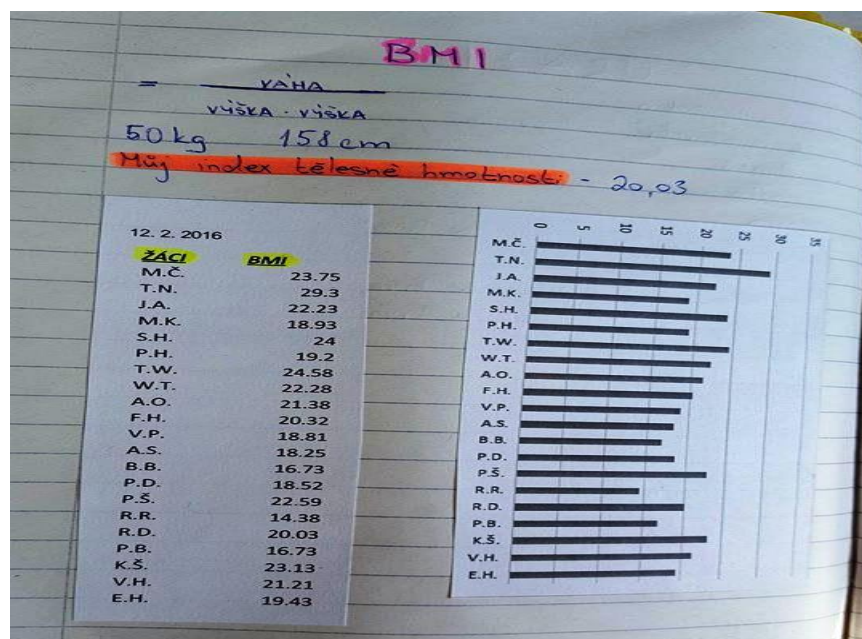 BMI
= VÁHA
VÝŠKA · VÝŠKA
50 kg 158 cm
Můj index tělesné hmotnosti - 20,03
12. 2. 2016
ŽÁCI BMI
M.Č. 23.75
T.N. 29.3
J.A. 22.23
M.K. 18.93
S.H. 24
P.H. 19.2
T.W. 24.58
W.T. 22.28
A.O. 21.38
F.H. 20.32
V.P. 18.81
A.S. 18.25
B.B. 16.73
P.D. 18.52
P.Š. 22.59
R.R. 14.38
R.D. 20.03
P.B. 16.73
K.Š. 23.13
V.H. 21.21
E.H. 19.43
0 5 10 15 20 25 30 35
M.Č.
T.N.
J.A.
M.K.
S.H.
P.H.
T.W.
W.T.
A.O.
F.H.
V.P.
A.S.
B.B.
P.D.
P.Š.
R.R.
R.D.
P.B.
K.Š.
V.H.
E.H.